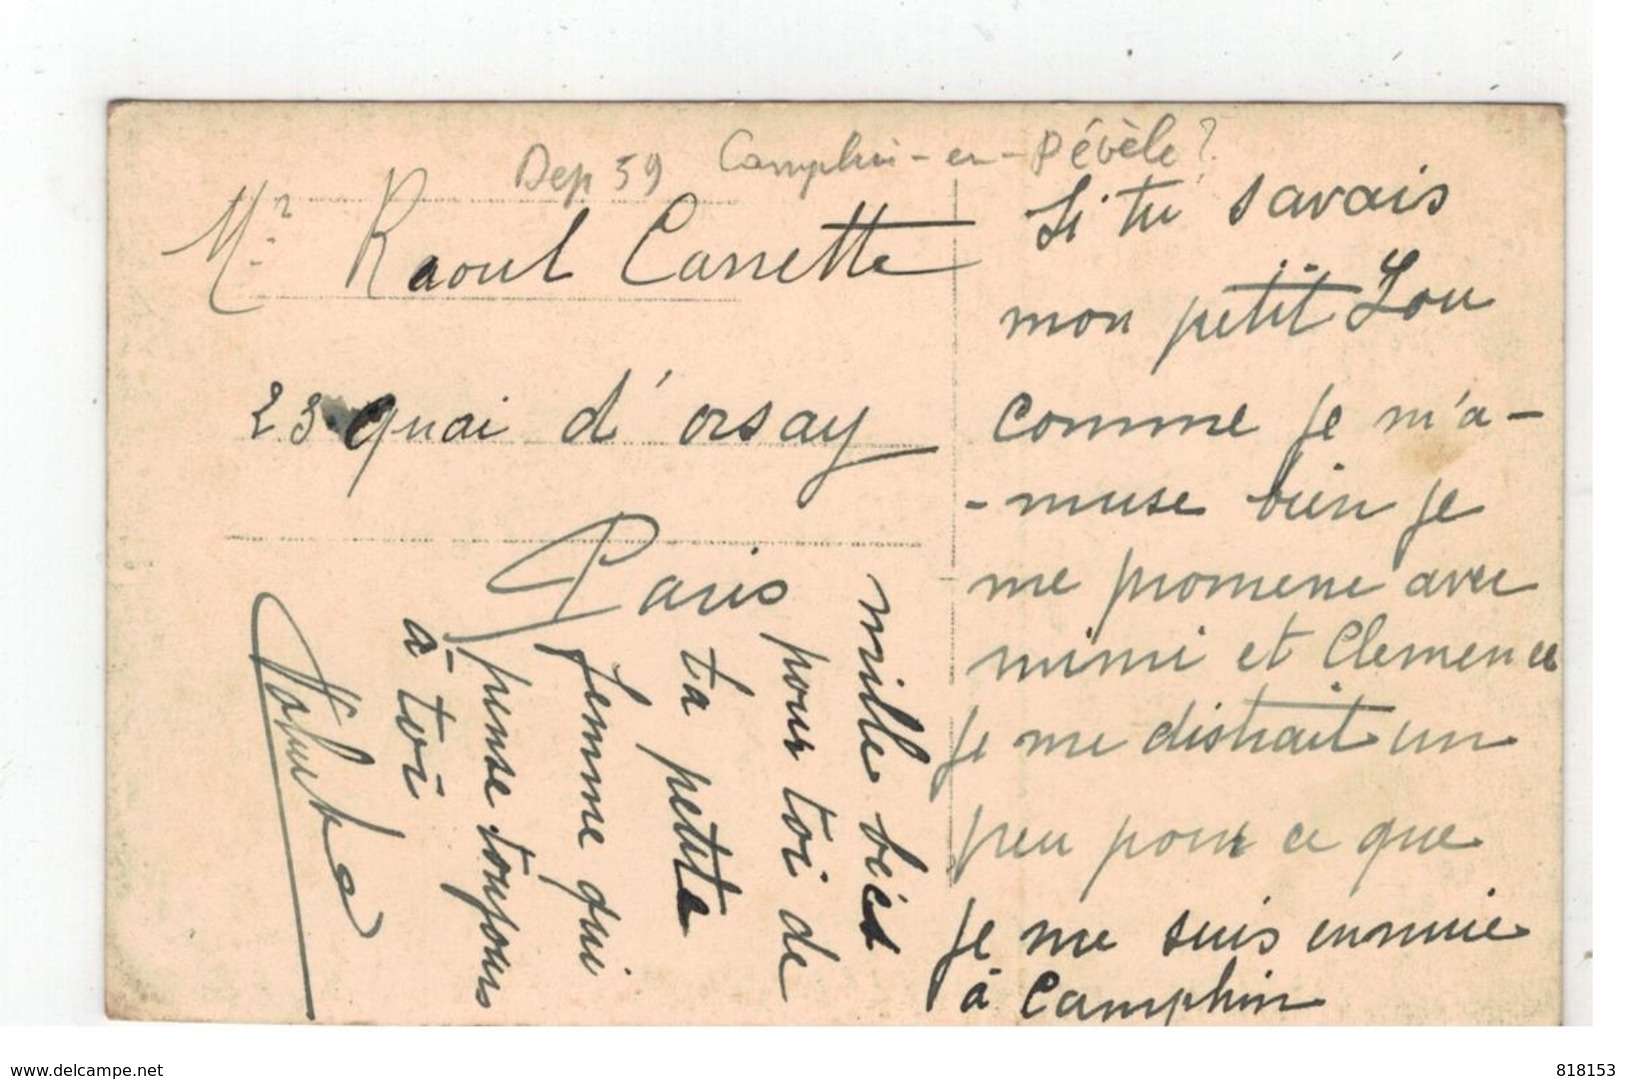 Dep 59 Camphin-en-Pévèle?
Mr Raoul Carrette
23 quai d'orsay
Paris
Si tu savais
mon petit Lou
comme je m'a-
-muse bien je
me promene avec
mimi et Clemence
je me distrait un
peu pour ce que
je me suis ennuie
à Camphin
mille béés
pour toi de
ta petite
femme qui
pense toujours
à toi
www.delcampe.net
818153